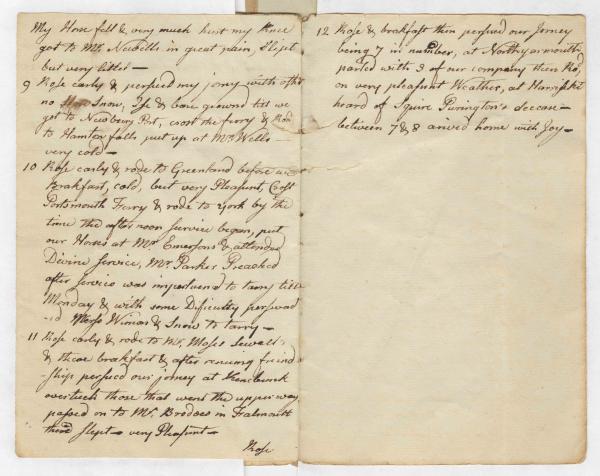 My Horse fell & very much hurt my Knee
got to Mr. Newells in great pain, Slept
but very little—
9 Rose early & persued my jorny with after
no Snow, Ise & bare ground til we
got to Newbury Port, crost the ferry & Rod
to Hamton falls put up at Mr. Wells—
very cold—
10 Rose early & rode to Greenland before
Brakfast, cold, but very Pleasunt, Crost
Portsmouth Ferry & rode to York by the
time the after noon Service began, put
our Horses at Mr Emersons & attended
Divine Service, Mr Parker Preached
after Service was importuned to tarry till
Monday & with some Dificulty perswad
-ed Wiman & Snow to tarry—
11 Rose early & rode to Mr. Moses Sewalls
& thare brakfast & after renuing friend
-ship persued our jorney at Kenebunk
overteuck those that went the upper way
passed on to Mr. Brodees in Falmouth
there Slept— very Pleasunt—
Rose
12 Rose & brakfast then persued our Jorney
being 7 in number, at North yarmouth
parted with 3 of our company then Rod
on very pleasunt Weather, at Harrisket
heard of Squire Purington's
between 7 & 8 arived home with Joy—